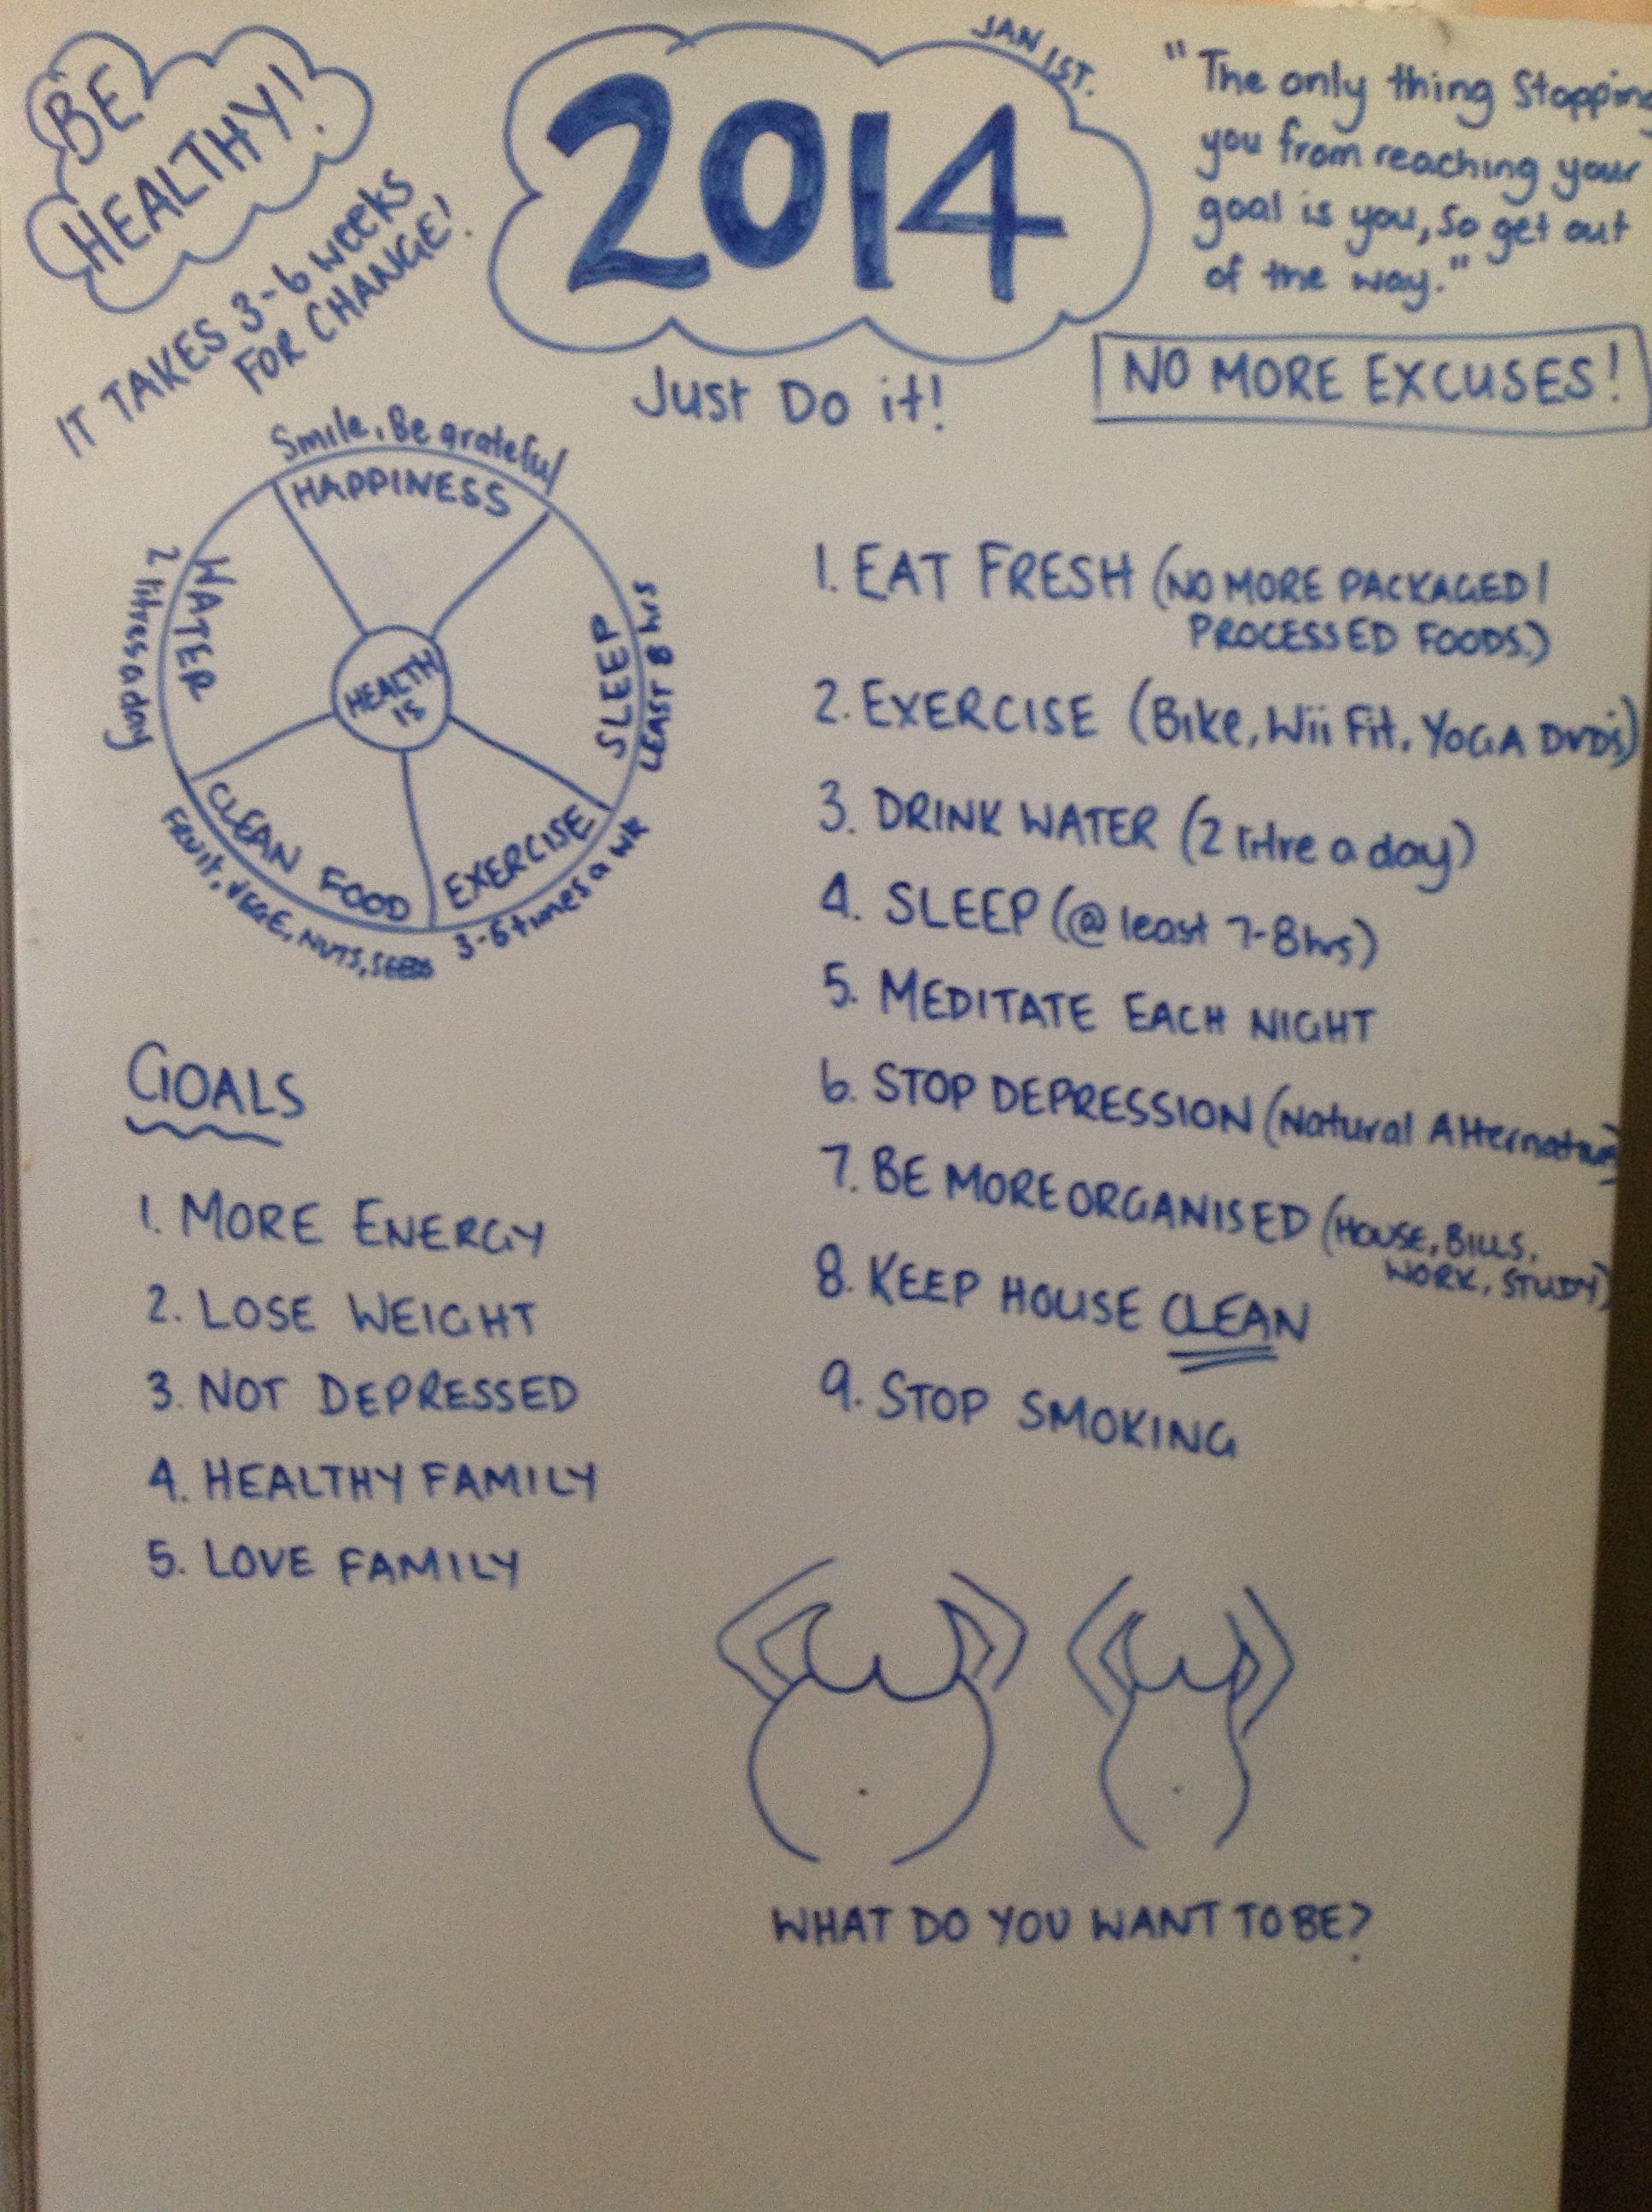 BE
HEALTHY!
IT TAKES 3-6 weeks
FOR CHANGE!
JAN 1ST.
2014
Just Do it!
"The only thing Stopping
you from reaching your
goal is you, So get out
of the way."
NO MORE EXCUSES!
Smile, Be grateful
HAPPINESS
SLEEP
LEAST 8 hrs
EXERCISE
3-6 times a wk
CLEAN FOOD
FRUIT, VEGE, NUTS, SEEDS
WATER
2 litres a day
HEALTH
IS
1. EAT FRESH (NO MORE PACKAGED/
PROCESSED FOODS.)
2. EXERCISE (Bike, Wii Fit, YOGA DVD's)
3. DRINK WATER (2 litre a day)
4. SLEEP (@ least 7-8hrs)
5. MEDITATE EACH NIGHT
6. STOP DEPRESSION (Natural
7. BE MORE ORGANISED (HOUSE, BILLS,
WORK, STUDY)
8. KEEP HOUSE CLEAN
9. STOP SMOKING
GOALS
1. MORE ENERGY
2. LOSE WEIGHT
3. NOT DEPRESSED
4. HEALTHY FAMILY
5. LOVE FAMILY
WHAT DO YOU WANT TO BE?